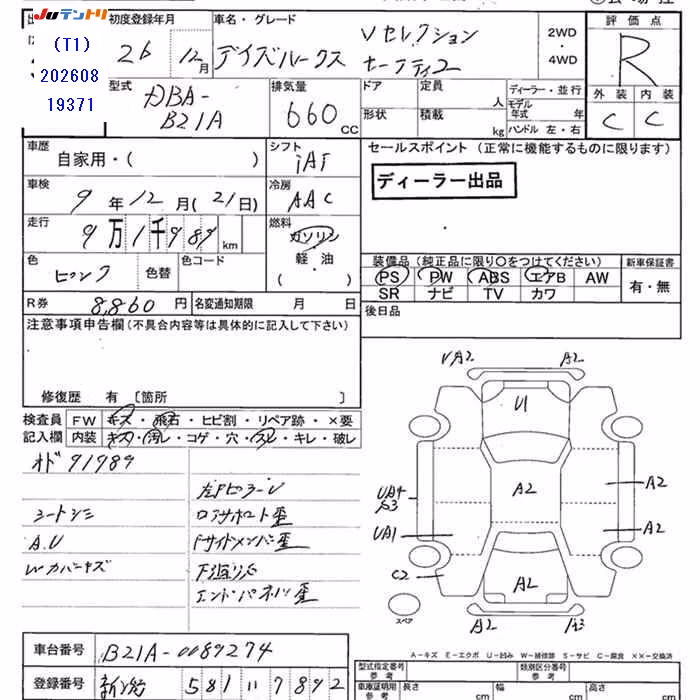 JUテントリ
(T1)
202608
19371
初度登録年月
26 12月
車名・グレード
デイズルークス
Vセレクション
セーフティ2
2WD
・
4WD
評価点
R
外装 内装
C C
型式
DBA-
B21A
排気量
660
CC
ドア
定員
人
ディーラー・並行
モデル
年式 年
ハンドル 左・右
形状
積載
kg
車歴
自家用・( )
シフト
IAT
セールスポイント (正常に機能するものに限ります)
ディーラー出品
車検
9年12月(21日)
冷房
AAC
走行
9万1千989km
燃料
ガソリン
軽・油
( )
色
ピンク
色替
色コード
装備品(純正品に限り○をつけてください)
新車保証書
PS PW ABS エアB AW
SR ナビ TV カワ
有・無
R券
8,860円
名変通知期限 月 日
後日品
注意事項申告欄(不具合内容等は具体的に記入して下さい)
修復歴 有 〔箇所 〕
検査員
記入欄
FW キズ・飛石・ヒビ割・リペア跡・×要
内装 キズ・汚レ・コゲ・穴・スレ・キレ・破レ
オド 91989
シートシミ
A.U
Wカバーキズ
コアサポート歪
エンドパネル歪
UA2 A2
U1
A2
A2
A2
UA4
S3
UA1
C2
A2
A2
スペア
A-キズ E-エクボ U-凹み W-補修跡 S-サビ C-腐食 ××-交換済
車台番号
B21A-0089274
登録番号
新潟 581 い 7892
型式指定番号
類別区分番号
車庫証明用
参考
長さ cm
幅 cm
高さ cm